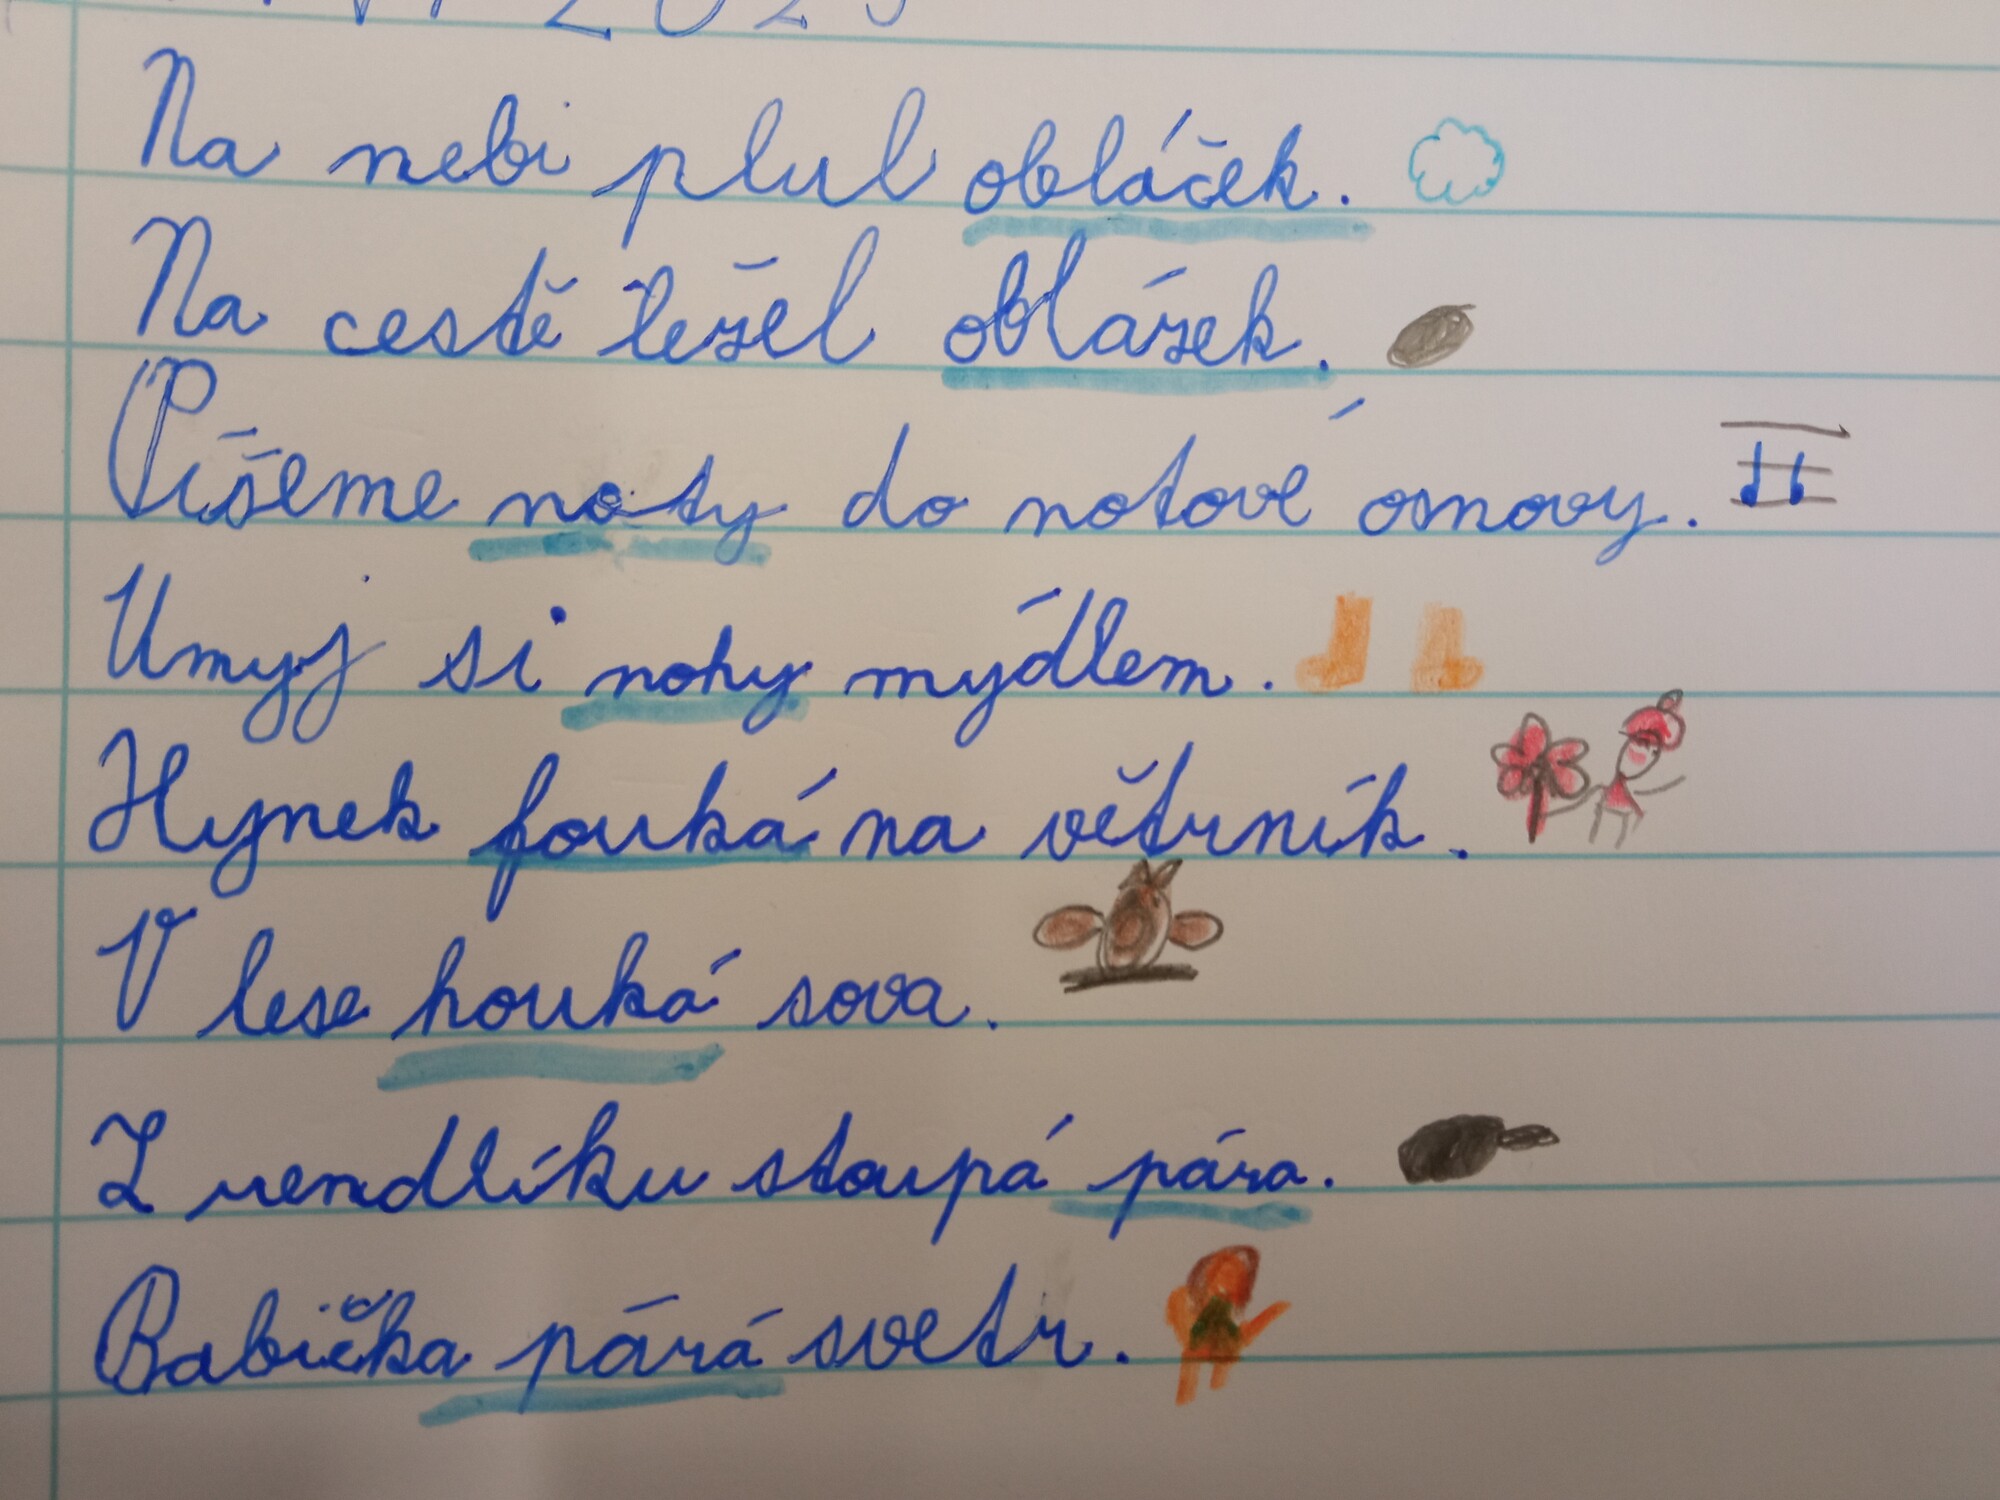 2023
Na nebi plul obláček.
Na cestě ležel oblázek.
Píšeme noty do notové osnovy.
Umyj si nohy mýdlem.
Hynek fouká na větrník.
V lese houká sova.
Z rendlíku stoupá pára.
Babička párá svetr.